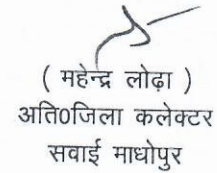 ( महेन्द्र लोढ़ा )
अति०जिला कलेक्टर
सवाई माधोपुर